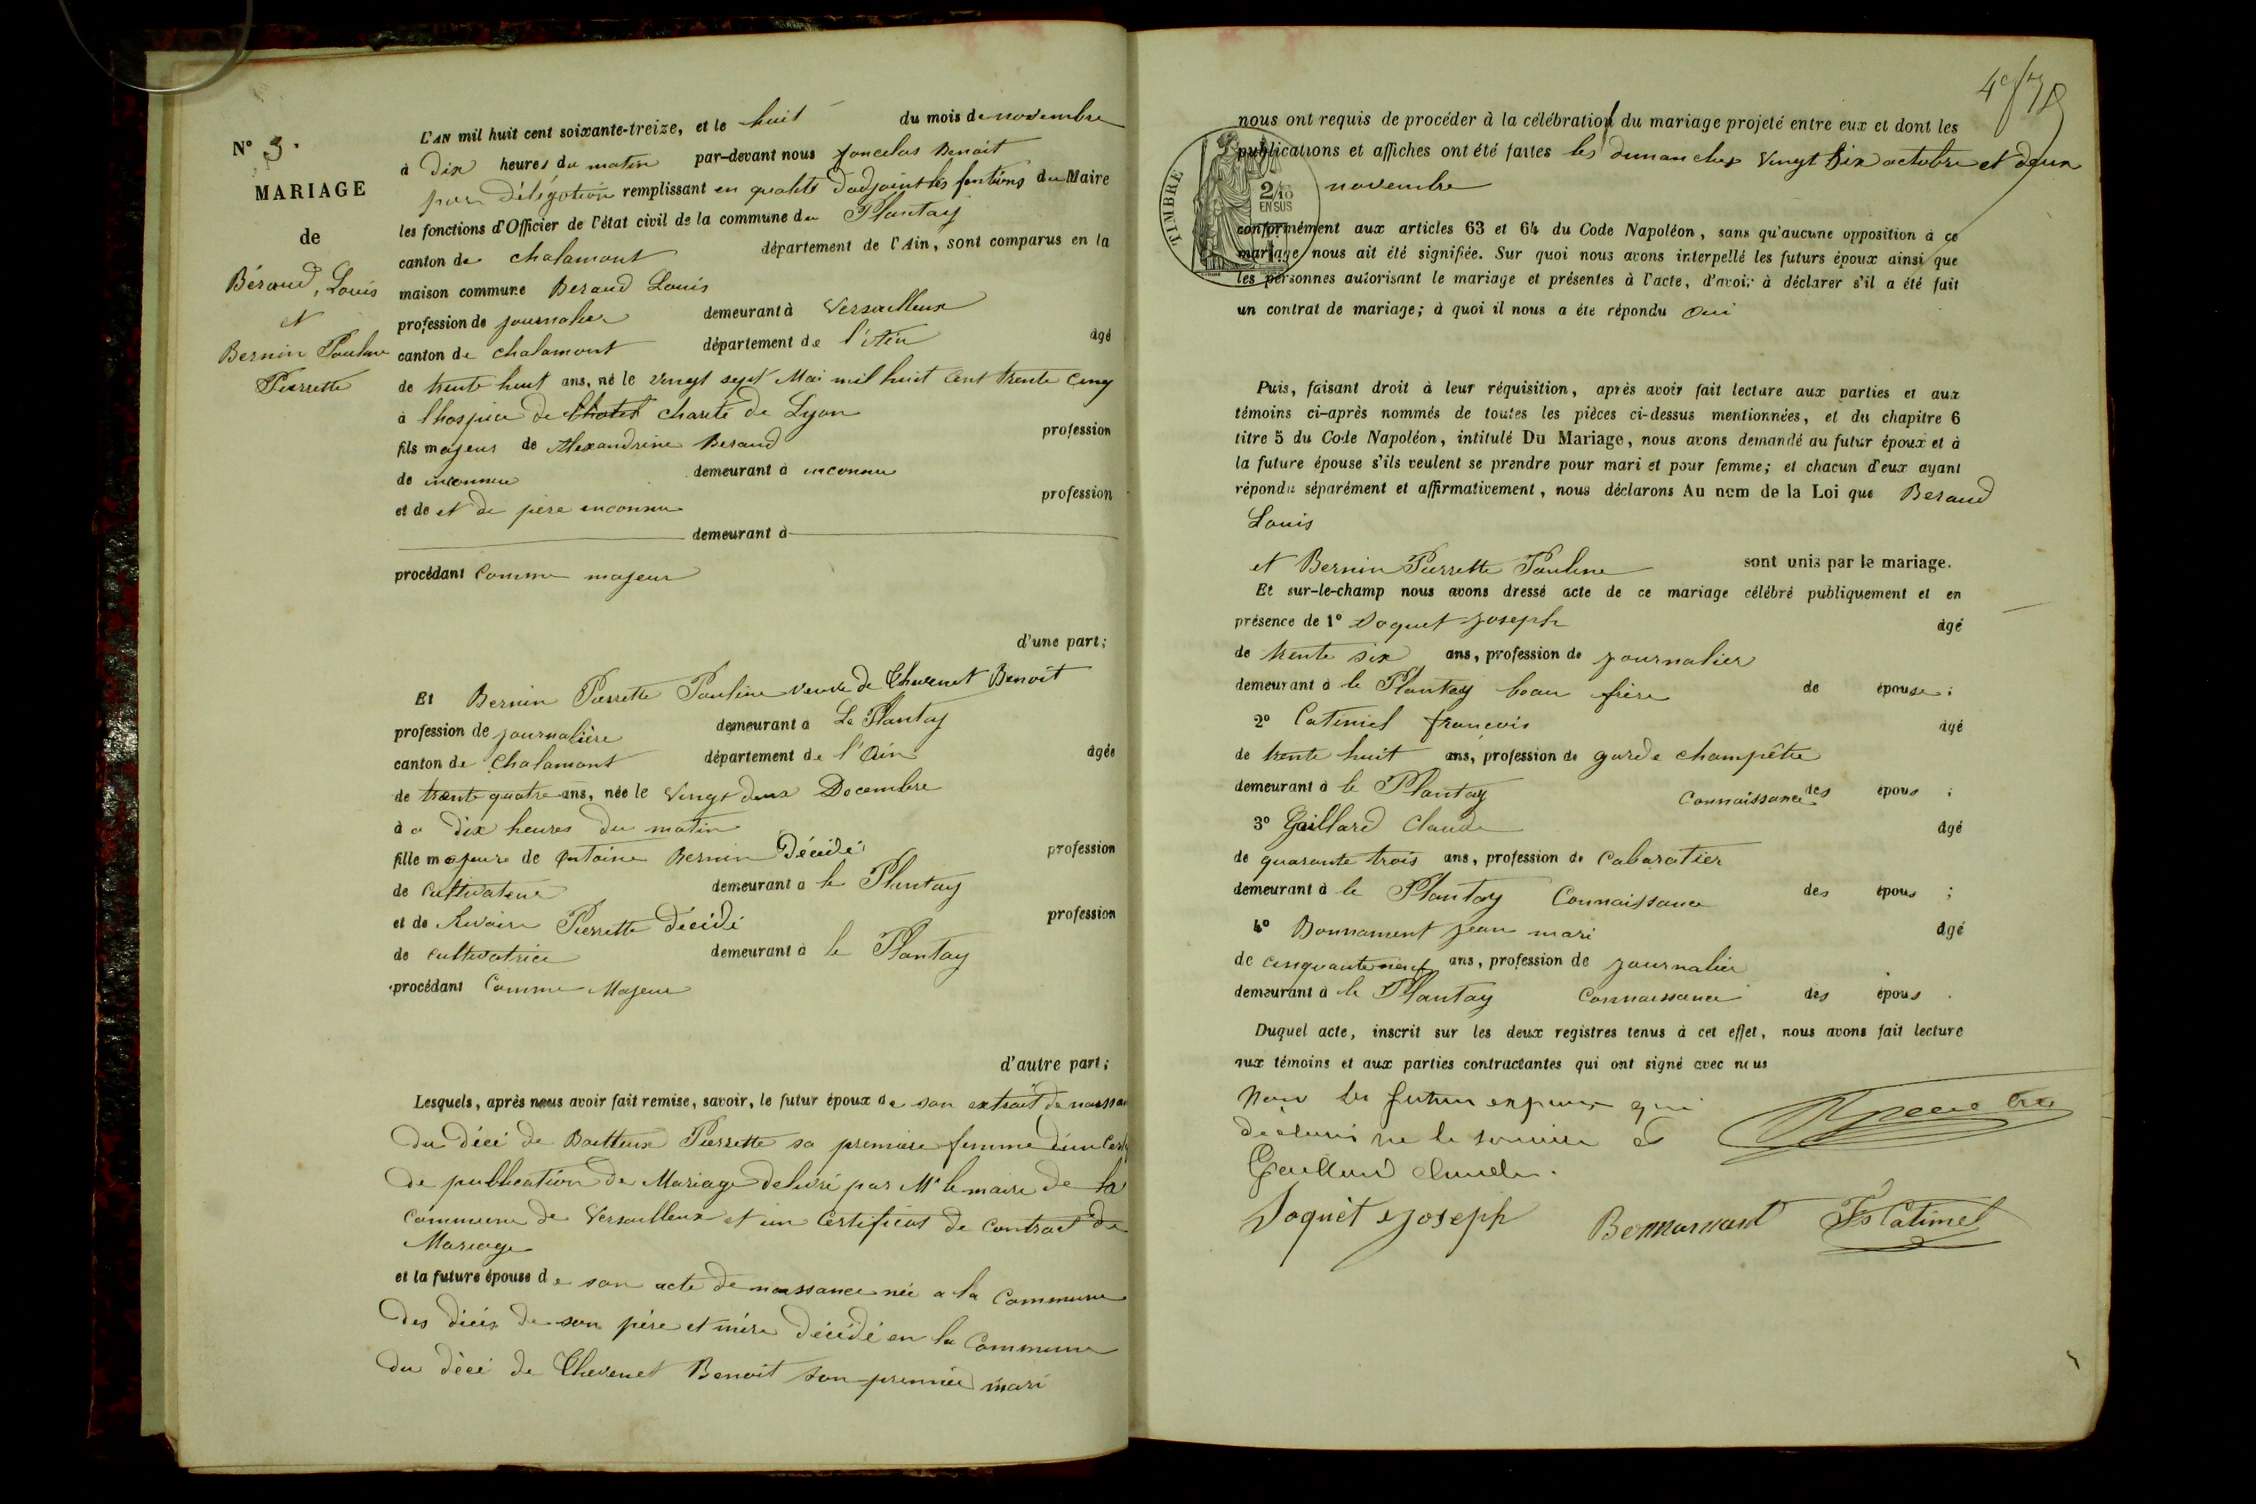 N° 3.
MARIAGE
de
Béraud, Louis
et
Bernin Pauline
Pierrette
L'AN mil huit cent soixante-treize, et le huit du mois de novembre
à dix heures du matin par-devant nous Joncelas Benoit
par Délégation remplissant en qualité d'adjoint les fontions du Maire
les fonctions d'Officier de l'état civil de la commune du Plantay
canton de chalamont département de l'Ain, sont comparus en la
maison commune Beraud Louis
profession de journalier demeurant à Versailleux
canton de chalamont département de l'Ain âgé
de trente huit ans, né le vingt sept Mai mil huit cent trente cinq
à l'hospice de charité de Lyon
fils majeur de Alexandrine Beraud profession
de inconnue demeurant à inconnu
et de et de père inconnu profession
demeurant à
procédant comme majeur
d'une part;
Et Bernin Pierrette Pauline veuve de Thevenet Benoit
profession de journalière demeurant à Le Plantay
canton de Chalamont département de l'Ain âgée
de trente quatre ans, née le vingt deux Decembre
à a dix heures du matin
fille majeure de Antoine Bernin Décédé profession
de cultivateur demeurant à le Plantay
et de Rivoire Pierrette décédé profession
de cultivatrice demeurant à le Plantay
procédant Comme Majeur
d'autre part;
Lesquels, après nous avoir fait remise, savoir, le futur époux de son extrait de naissan
du décé de Pierrette sa première femme d'un
de publication de Mariage delivré par Mr le maire de la
commune de Versailleux et un Certificat de contrat de
Mariage
et la future épouse de son acte de naissance née a la Commune
des décés de son père et mère décédé en la Commune
du décé de Thevenet Benoit son premier mari
49/78
nous ont requis de procéder à la célébration du mariage projeté entre eux et dont les
publications et affiches ont été faites les dimanches vingt six octobre et deux
novembre
TIMBRE
2/10
EN SUS
conformément aux articles 63 et 64 du Code Napoléon, sans qu'aucune opposition à ce
mariage nous ait été signifiée. Sur quoi nous avons interpellé les futurs époux ainsi que
les personnes autorisant le mariage et présentes à l'acte, d'avoir à déclarer s'il a été fait
un contrat de mariage; à quoi il nous a été répondu Oui
Puis, faisant droit à leur réquisition, après avoir fait lecture aux parties et aux
témoins ci-après nommés de toutes les pièces ci-dessus mentionnées, et du chapitre 6
titre 5 du Code Napoléon, intitulé Du Mariage, nous avons demandé au futur époux et à
la future épouse s'ils veulent se prendre pour mari et pour femme; et chacun d'eux ayant
répondu séparément et affirmativement, nous déclarons Au nom de la Loi que Beraud
Louis
et Bernin Pierrette Pauline sont unis par le mariage.
Et sur-le-champ nous avons dressé acte de ce mariage célébré publiquement et en
présence de 1° Doquet Joseph âgé
de trente six ans, profession de journalier
demeurant à le Plantay beau frère de épouse;
2° Catimel françois âgé
de trente huit ans, profession de garde champêtre
demeurant à le Plantay Connaissance des épous;
3° Gaillard Claude âgé
de quarante trois ans, profession de Cabaratier
demeurant à le Plantay Connaissance des épous;
4° Bonnament Jean mari âgé
de cinquante neuf ans, profession de journalier
demeurant à le Plantay Connaissance des épous.
Duquel acte, inscrit sur les deux registres tenus à cet effet, nous avons fait lecture
aux témoins et aux parties contractantes qui ont signé avec nous
Non les futurs qui
ne le
Gaillard Claude.
Doquet Joseph Bonnarnant Fs Catimel